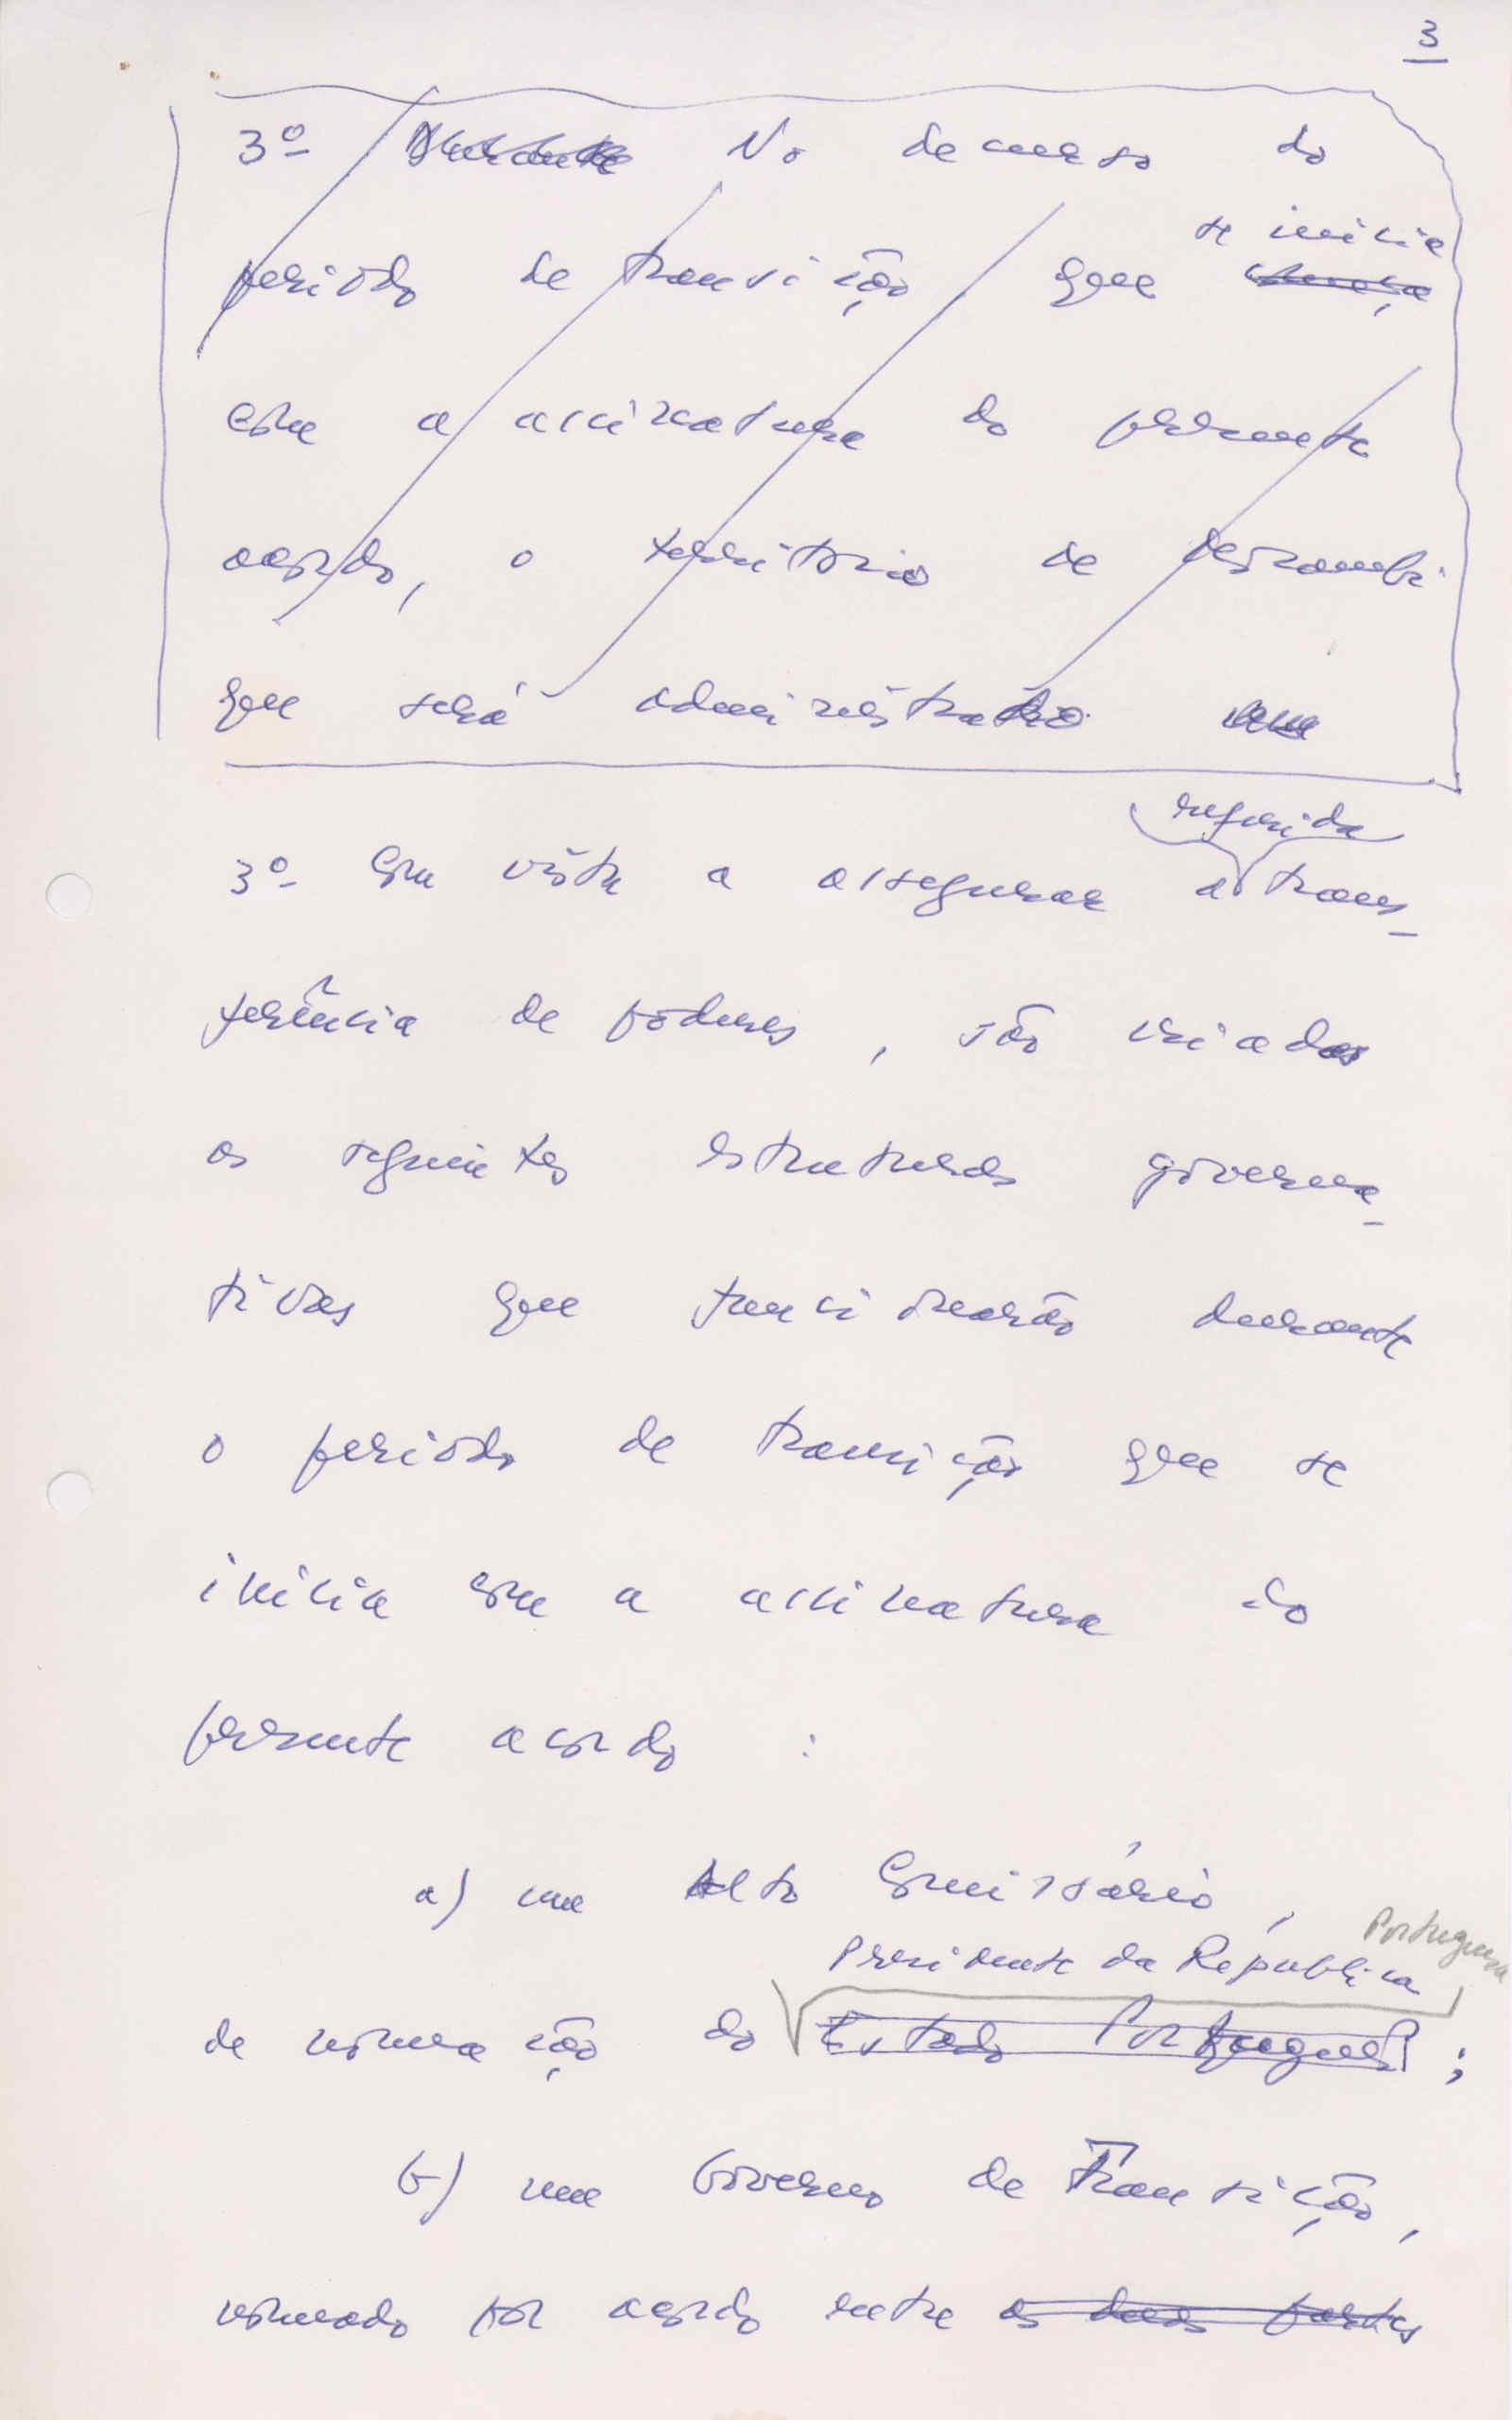 3
3º Durante No decurso do
se inicia
período de transição, que começa
com a assinatura do presente
acordo, o território de Moçambi
que será administrado
referida
3º Com vista a assegurar a trans_
ferência de poderes, são criadas
as seguintes estruturas governa_
tivas que funcionarão durante
o período de transição que se
inicia com a assinatura do
presente acordo :
a) um Alto Comissário,
Presidente da República Portuguesa
de nomeação do Estado Português ;
b) um Governo de Transição,
nomeado por acordo entre as duas partes